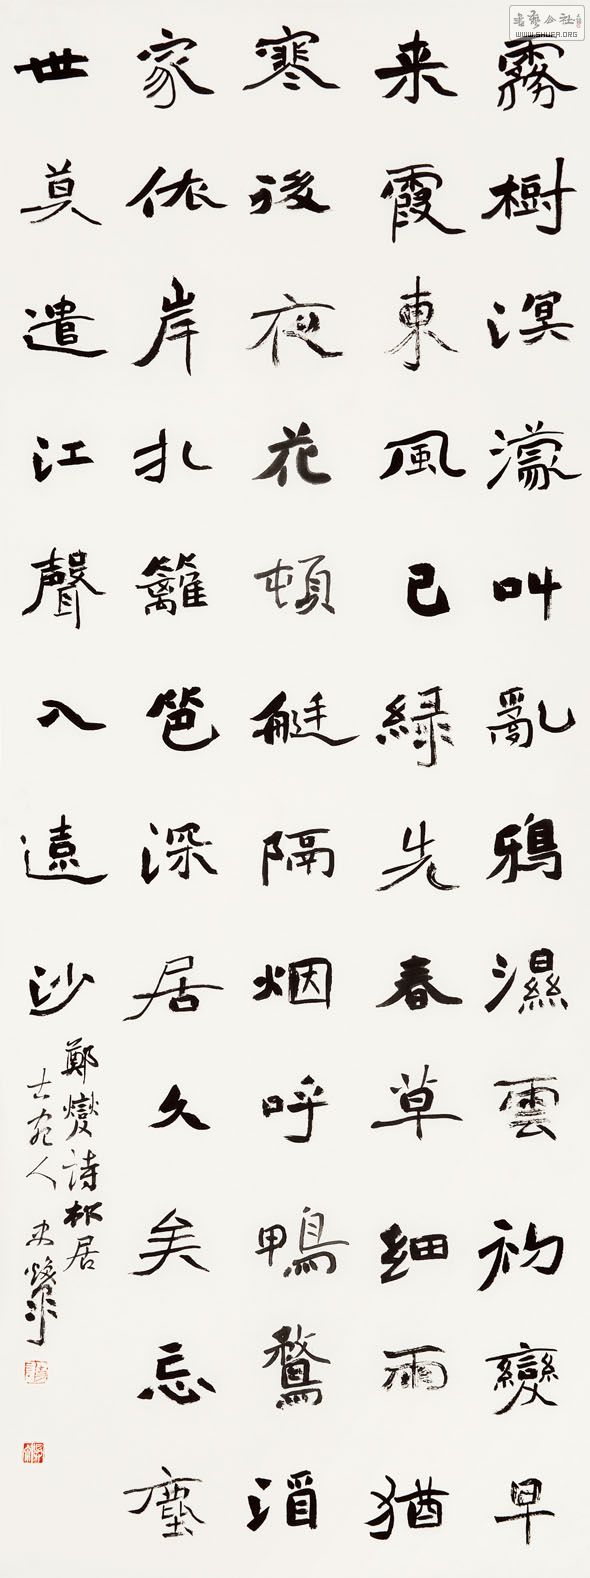 霧樹溟濛叫亂鴉濕雲初變早
来霞東風已緑先春草細雨猶
寒後夜花頓艇隔烟呼鴨鶩酒
家依岸扎籬笆深居久矣忘塵
世莫遣江聲入遠沙
鄭燮詩邨居
書藝公社
WWW.SHUFA.ORG